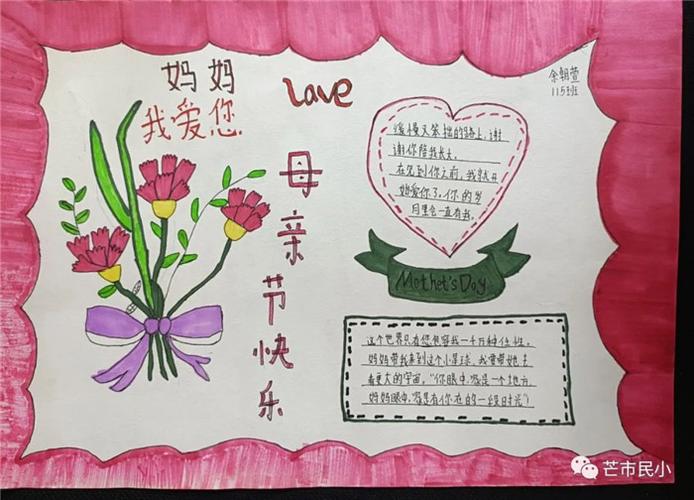 妈妈
我爱您
Love
余朝萱
115班
母亲节快乐
缓慢又笨拙的路上,谢
谢你陪我长大。
在见到你之前,我就开
始爱你了,你的岁
月里会一直有我。
Mother's Day
这个世界只有您包容我一千万种任性。
妈妈带我来到这个小星球,我要带她去
看更大的宇宙。"你眼中,家是一个地方
妈妈眼中,家是有你在的一段时光")
芒市民小